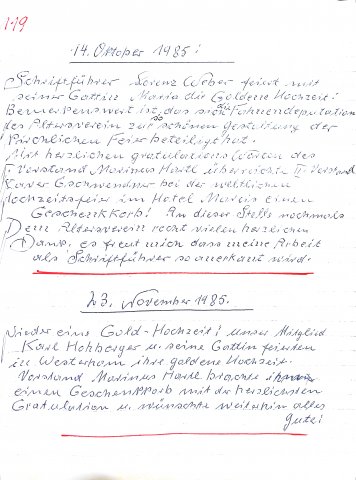 119
14. Oktober 1985!
Schriftführer Lorenz Weber feiert mit
seiner Gattin Maria die Goldene Hochzeit!
Bemerkenswert ist, das sich die Fahnendeputation
des Altersverein zur so schönen gestaltung der
Kirchlichen Feier beteiligt hat.
Mit herzlichen gratulations Worten des
I. Vorstand Marinus Hartl überreichte II. Vorstand
Xaver Gschwendner bei der weltlichen
Hochzeitsfeier im Hotel einen
Geschenkkorb! An dieser Stelle nochmals
Dem Altersverein recht vielen herzlichen
Dank, es freut mich dass meine Arbeit
als Schriftführer so anerkant wird.
23. November 1985.
Wieder eine Gold-Hochzeit! unser Mitglied
Karl Hohberger u. seine Gattin feierten
in Westerham ihre goldene Hochzeit.
Vorstand Marinus Hartl brachte ihnen
einen Geschenkkorb mit der herzlichsten
Gratulation u. wünschte weiterhin alles
Gute!